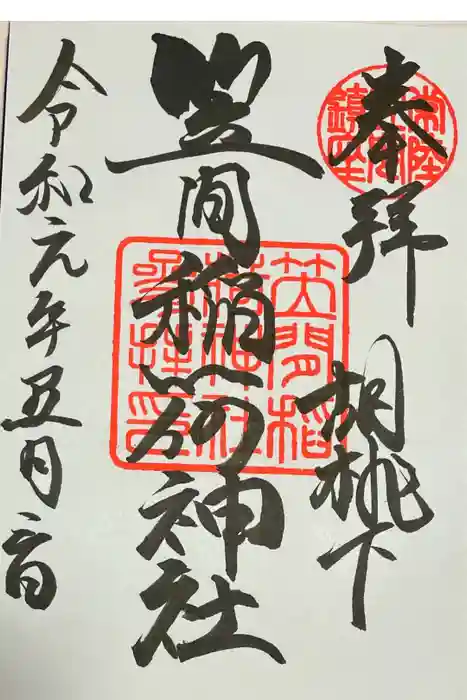 奉拝
胡桃下
笠間稲荷神社
令和元年五月六日
常陸国鎮座
笠間稲荷神社参拝之印